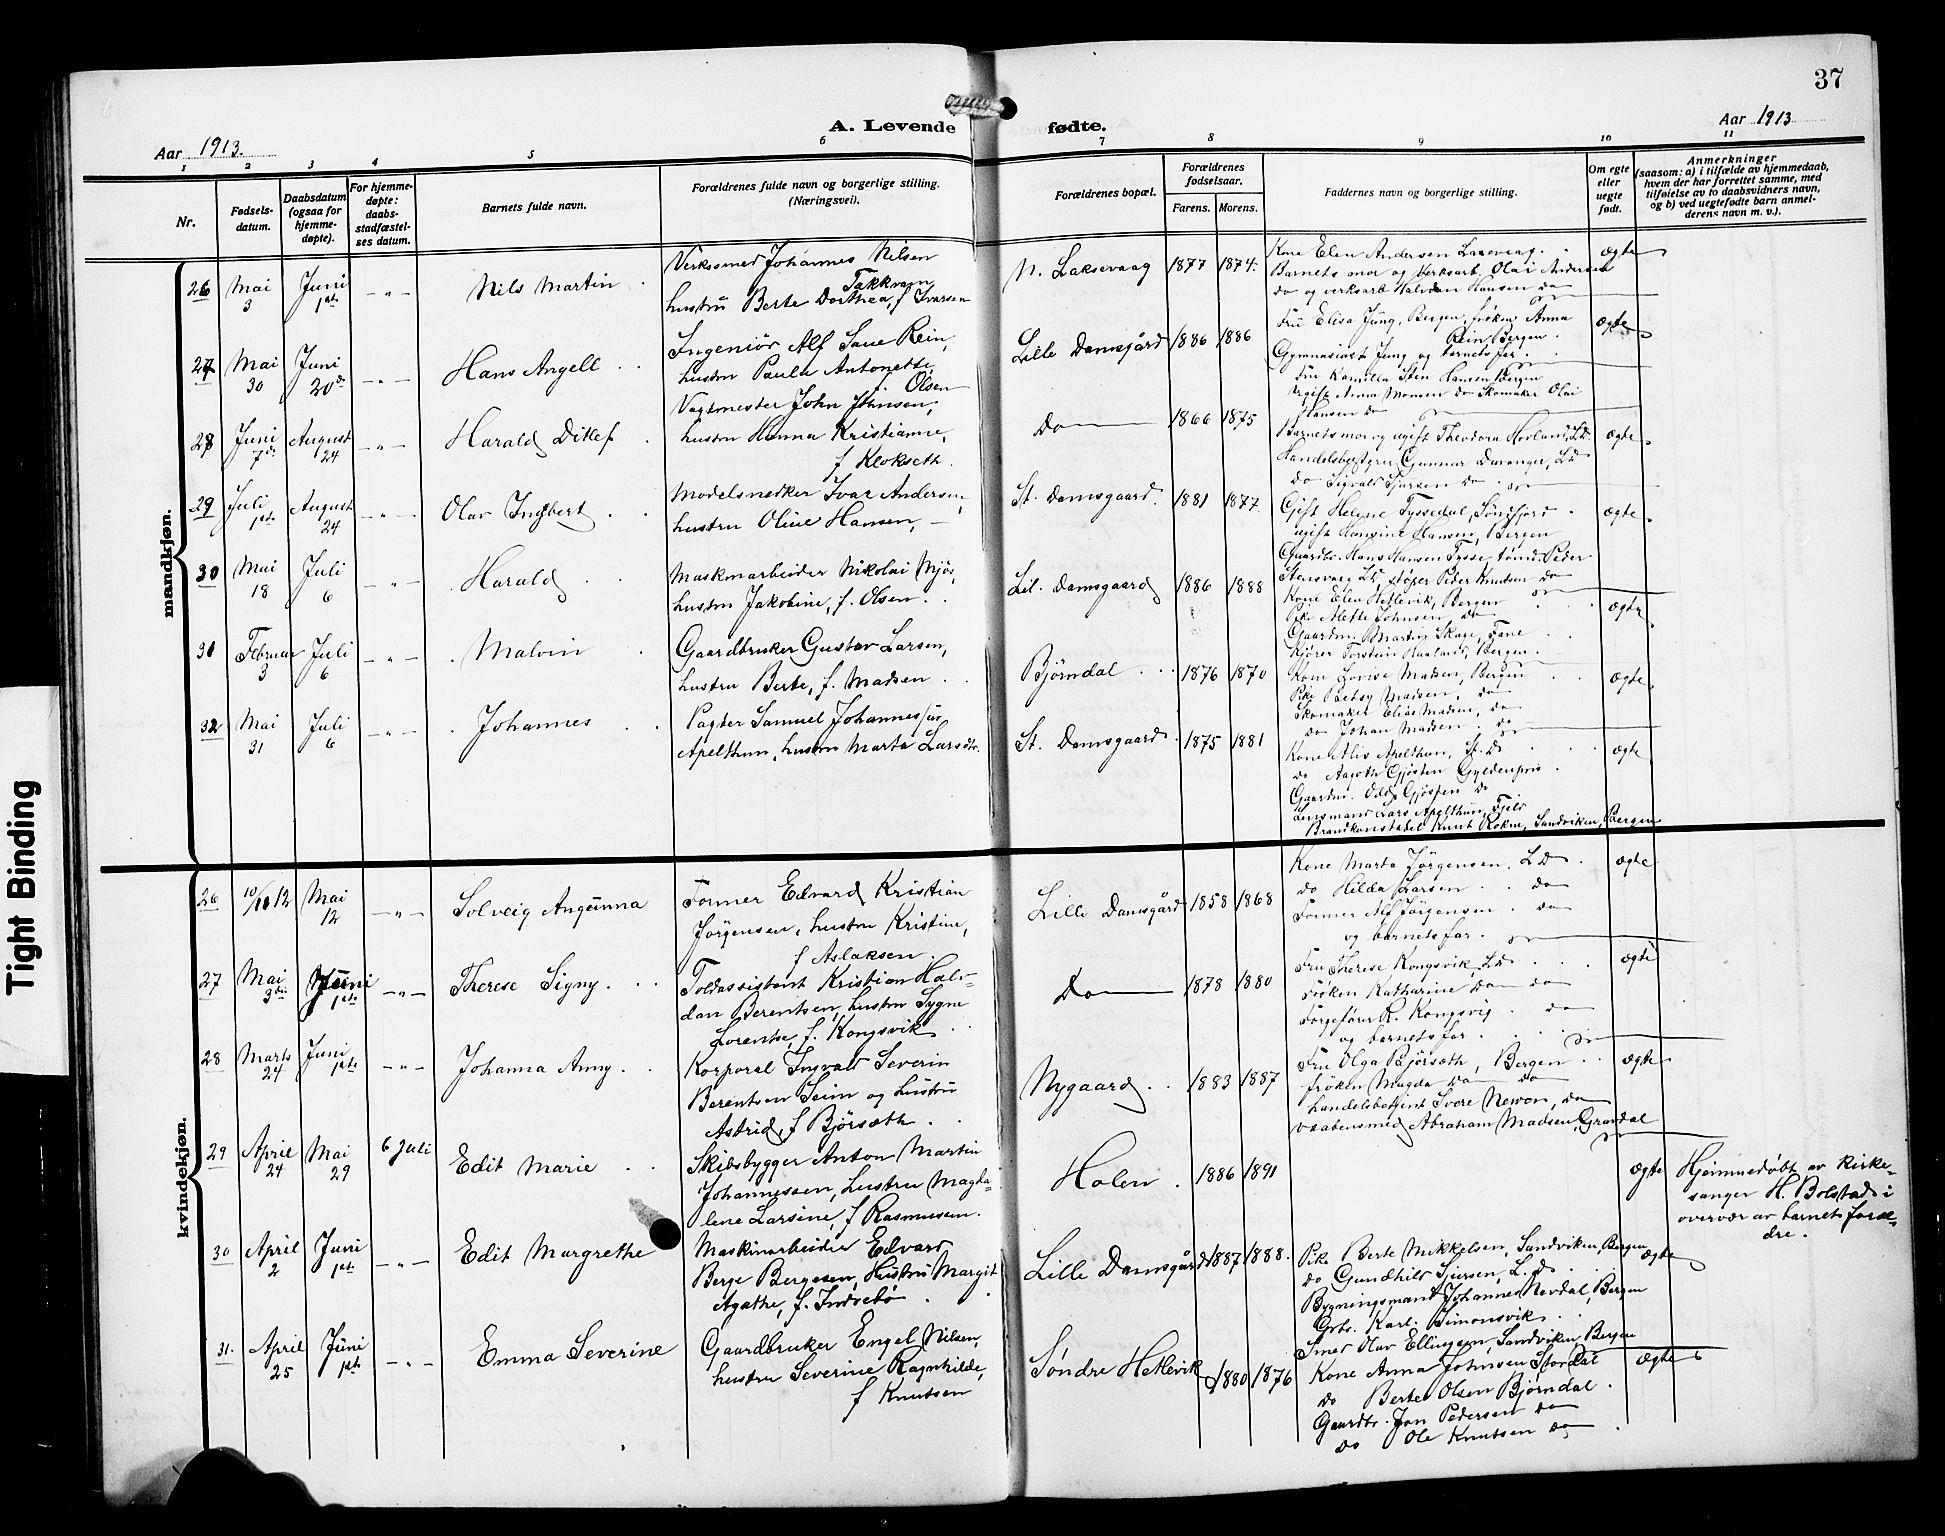 37
A. Levende fødte.
Aar 1913.
Aar 1913
1 2 3 4 5 6 7 8 9 10 11
Nr.
Fødsels-
datum.
Daabsdatum
(ogsaa for
hjemme-
døpte).
For hjemme-
døpte:
daabs-
stadfæstel-
ses datum.
Barnets fulde navn.
Forældrenes fulde navn og borgerlige stilling.
(Næringsvei).
Forældrenes bopæl.
Forældrenes
fødselsaar.
Farens. Morens.
Faddernes navn og borgerlige stilling.
Om egte
eller
uegte
født.
Anmerkninger
(saasom: a) i tilfælde av hjemmedaab,
hvem der har forrettet samme, med
tilføielse av to daabsvidners navn,
og b) ved uegtefødte barn anmel-
derens navn m. v.).
mandkjøn.
26 Mai 3 Juni 1ste — „ — Nils Martin
Verkssmed Johannes Nilsen
Takkvam
hustru Berte Dorthea, f Ivarsen
N. Laksevaag 1877 1874.
Kone Elen Andersen Laxevaag.
Barnets mor og verksarb. Olai Andersen
do og verksarb Halvdan Hansen do
ægte
27 Mai 30 Juni 20de — „ — Hans Angell
Ingeniør Alf Saue Rein,
hustru Paula Antonette,
f. Olsen
Lille Damsgård 1886 1886
Fru Elisa Jung, Bergen, frøken Anna
Rein, Bergen.
Gymnasiast Jung og barnets far.
ægte
28 Juni 7de August 24 — „ — Harald Ditlef
Vagtmester John Johnsen,
hustru Hanna Kristianne,
f Klokseth.
Do 1866 1875
Fru Kamilla Sten Hansen Bergen
ugift Anna Monsen do Skomaker Olai
Hansen do
ægte
29 Juli 1ste August 24 — „ — Olav Ingbert
Modelsnedker Ivar Andersen,
hustru Oline Hansen,
St. Damsgaard. 1881 1877.
Barnets mor og ugift Theodora Hovland, L.D.
Handelsbestyrer Gunnar Daranger, L D
do Sigvald Sjursen do
ægte
30 Mai 18 Juli 6 — „ — Harald
Maskinarbeider Nikolai Mjøs,
hustru Jakobine, f. Olsen.
Lil. Damsgaard 1886 1888
Gift Helene Tyssedal, Søndfjord
ugift Hansine Hansen, Bergen
Gaardbr. Hans Hansen Tysse, tømmerm. Peder
Stensvaag L D, fløser Peder Knutsen do
ægte
31 Februar 3 Juli 6 — „ — Malvin
Gaardbruker Gustav Larsen,
hustru Berte, f. Madsen
Bjørndal 1876 1870
Kone Elen Hetlevik, Bergen
Pike Alette Johnsen do
Gaardm. Martin Skage, Fane
Kjører Torstein Haaland, Bergen.
ægte
32 Mai 31 Juli 6 — „ — Johannes
Pagter Samuel Johannessen
Apelthun, hustru Marta Larsdtr.
St. Damsgaard. 1875 1881
Kone Lovise Madsen, Bergen
Pike Betsy Madsen, do
Skomaker Elias Madsen, do
do Johan Madsen do
Kone Alis Apelthun, St. D
do Aagoth Gjøsten Gyldenpris
Gaardm. Odd Gjøsten do
Lensmand Lars Apelthun, Fjeld
Brandkonstabel Knut Rokne, Sandviken, Bergen
ægte
kvindekjøn.
26 10/10 12 Mai 12 — „ — Solveig Angunna
Former Edvard Kristian
Jørgensen, hustru Kristine,
f Aslaksen.
Lille Damsgård 1858 1868
Kone Marta Jørgensen. L D
do Hilda Larsen do
Former Alf Jørgensen do
og barnets far.
ægte
27 Mai 3die Juni 1ste — „ — Therese Signy.
Toldassistent Kristian Halv-
dan Berentsen, hustru Sygne
Lorentse, f. Kongsvik
Do 1878 1880
Fru Therese Kongsvik, L D
Frøken Katharine do do
Forgefører R. Kongsvig do
og barnets far.
ægte
28 Marts 24 Juni 1ste — „ — Johanna Anny.
Korporal Ingvald Severin
Berentsen Seim og hustru
Astrid, f Bjørsæth.
Nygaard 1883 1887
Fru Olga Bjørsæth, Bergen
frøken Magda do do
handelsbetjent Sverre Newon, do
vaabensmed Abraham Madsen, Gravdal
ægte
29 April 24 Mai 29 6 Juli Edit Marie
Skibsbygger Anton Martin
Johannessen, hustru Magda-
lene Larsine, f Rasmussen.
Holen. 1886 1891
ægte
Hjemmedøbt av kirke-
sanger H. Bolstad i
overvær av barnets foræl-
dre.
30 April 2 Juni 1ste — „ — Edit Margrethe
Maskinarbeider Edvard
Berge Bergesen, Hustru Margit
Agathe, f. Indrebø
Lille Damsgård 1887 1888.
Pike Berte Mikkelsen, Sandviken, Bergen
do Gundhild Sjursen, L. D.
Bygningsmand Johannes Nordal, Bergen
Grbr. Karl. Simonsvik
Smed Olav Ellingsen, Sandviken, Bergen
ægte
31. April 25 Juni 1ste — „ — Emma Severine
Gaardbruker Engel Nilsen,
hustru Severine Ragnhilde,
f Knutsen
Søndre Hetlevik 1880 1876
Kone Anna Johnsen Stordal
do Berte Olsen Bjørndal
Gaardbr. Jon Pedersen do
do Ole Knutsen do
ægte
Tight Binding